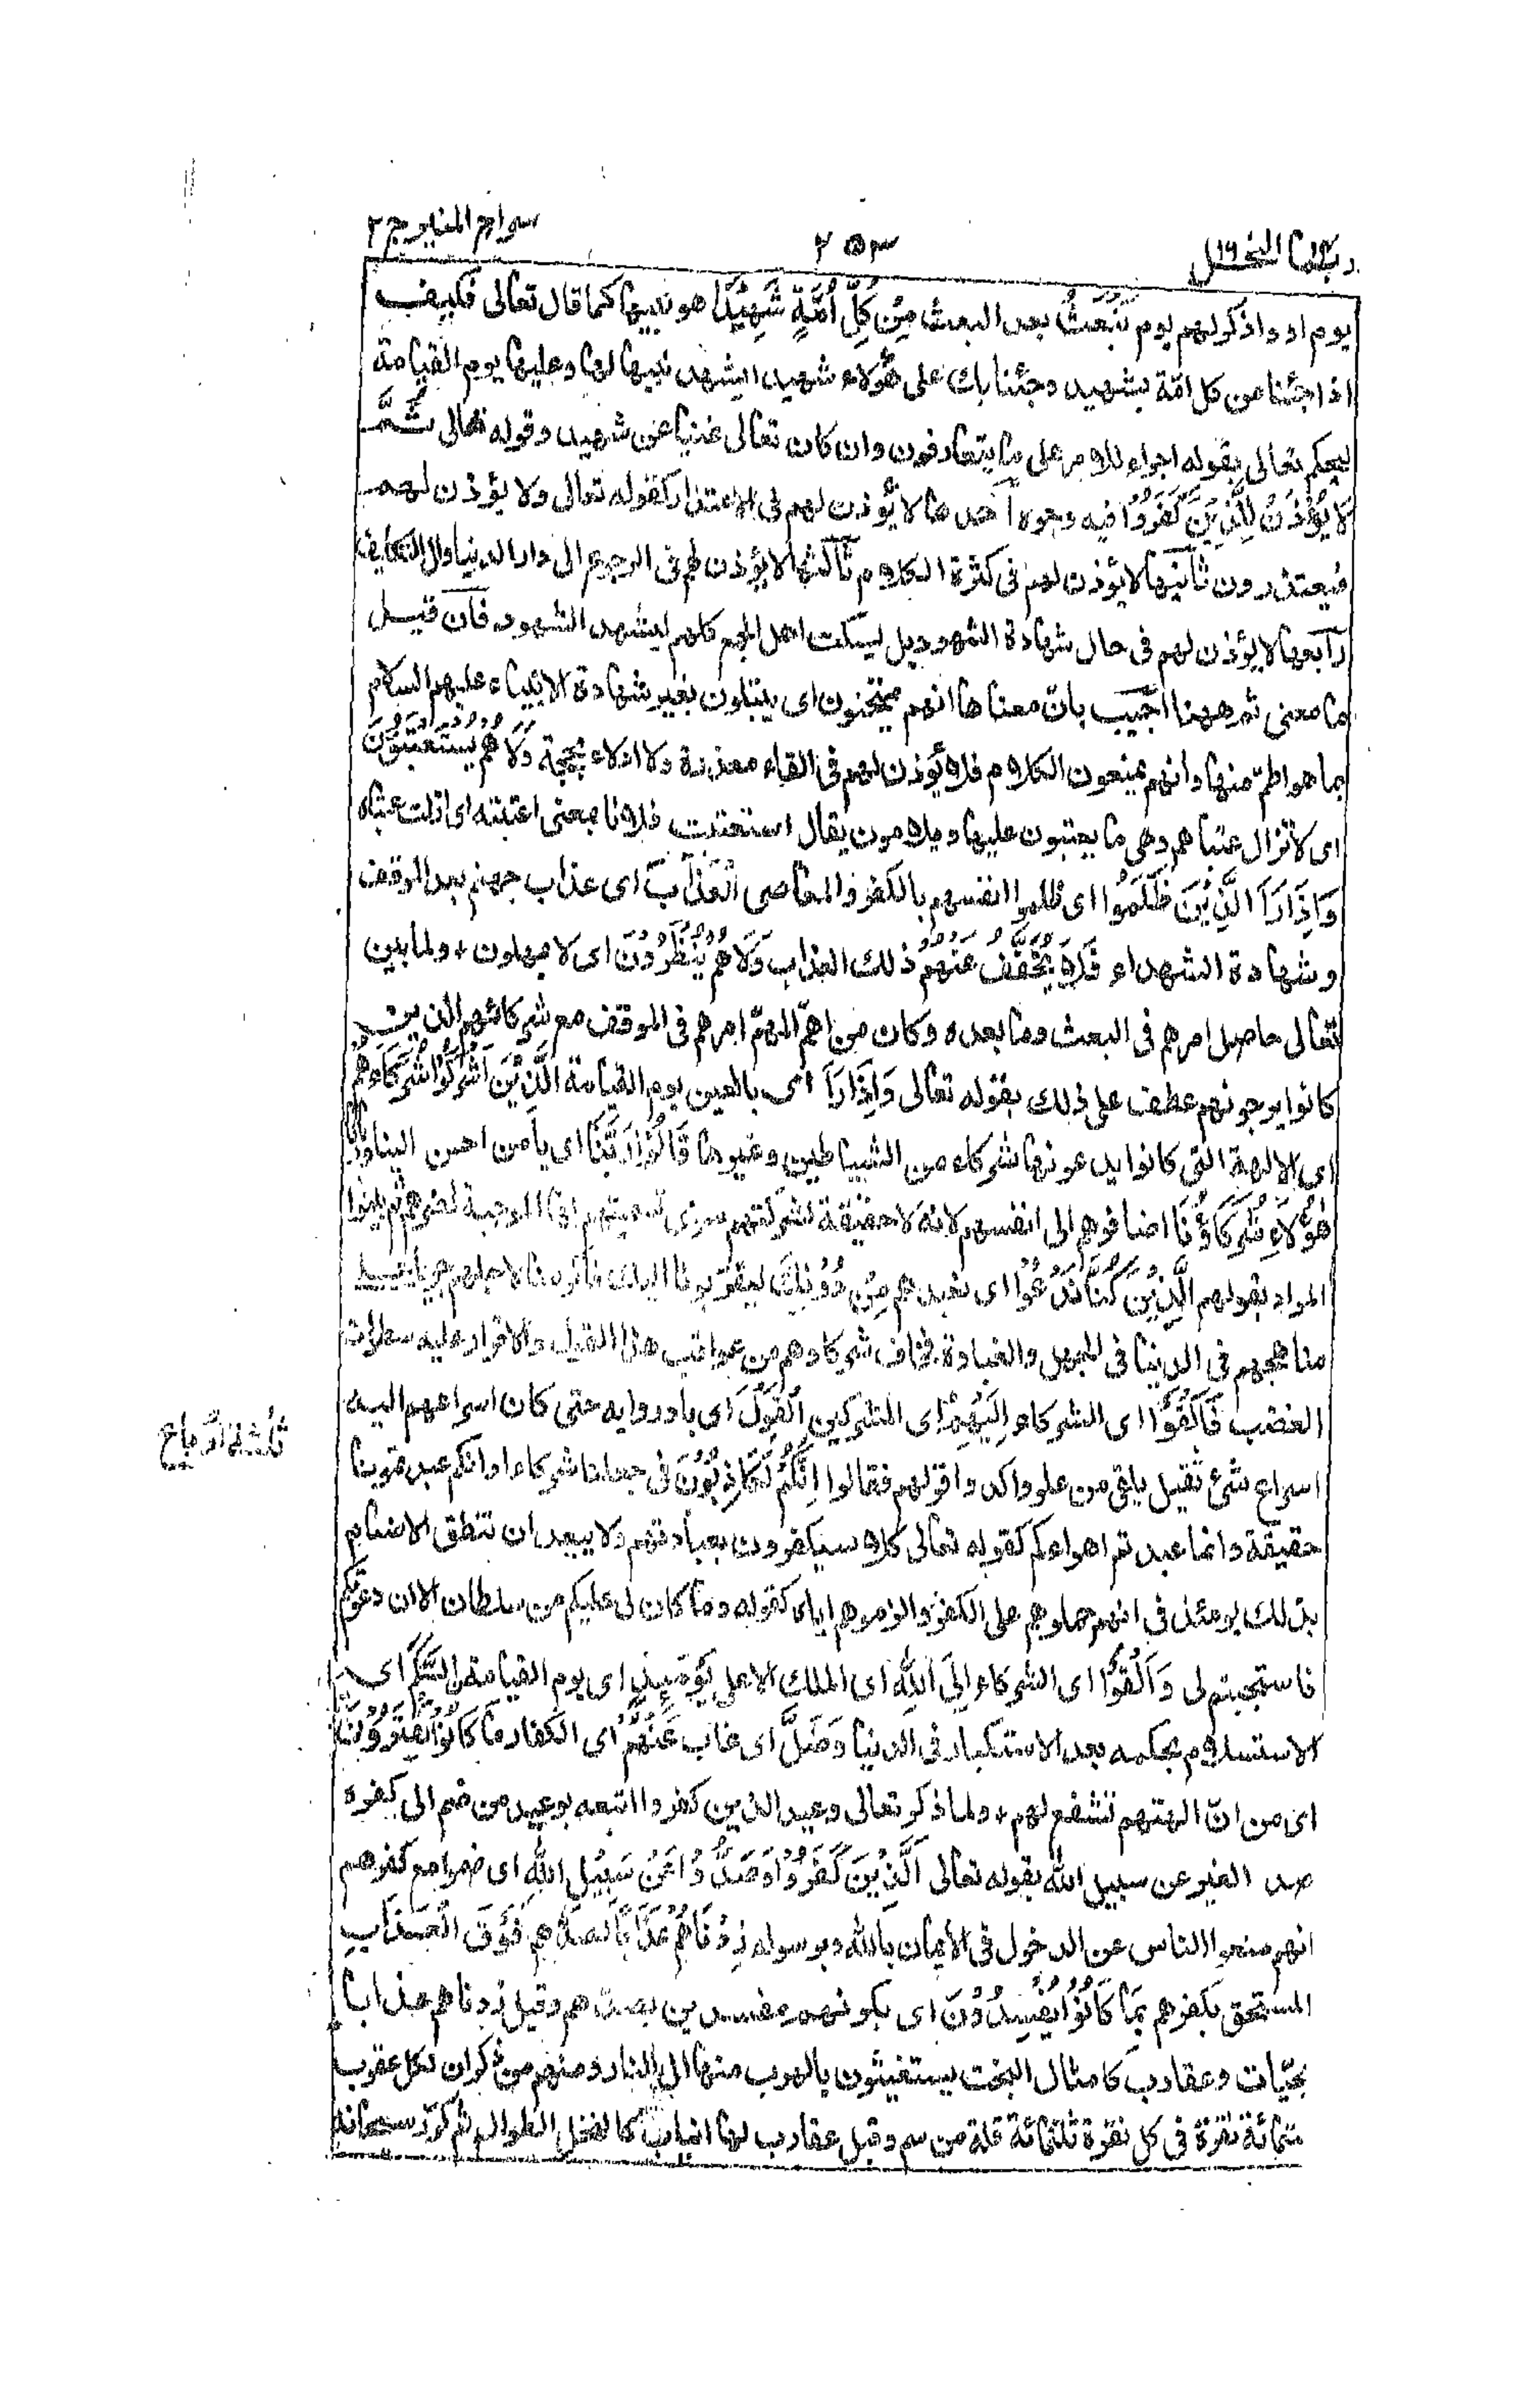 ربما النحل ١٦
٢٥٣
سراج المنير ج ٢
يوم او واذكر لهم يوم نَبْعَثُ بعد البعث مِنْ كُلِّ أُمَّةٍ شَهِيْدًا هو نبيها كما قال تعالى فكيف
اذا جئنا من كل امّة بشهيد وجئنا بك على هؤلاء شهيدا يشهد نبيها لها وعليها يوم القيامة
ليحكم تعالى بقوله اجراء للامر على ما يتعارفون وان كان تعالى غنيا عن شهيد وقوله تعالى ثُمَّ
لَا يُؤْذَنُ لِلَّذِيْنَ كَفَرُوْا فيه وجوه آحدها لا يُؤذن لهم فى الاعتذار كقوله تعالى ولا يؤذن لهم
فيعتذرون ثانيها لا يؤذن لهم فى كثرة الكلام ثالثها لا يؤذن لهم فى الرجوع الى دار الدنيا والى التكليف
رآبعها لا يؤذن لهم فى حال شهادة الشهود بل يسكت اهل الجمع كلهم ليشهد الشهود فآن قيل
ما معنى ثم ههنا اجّيب بانّ معناها انهم يمتحنون اى يبتلون بغير شهادة الانبياء عليهم السلام
بما هو اطمّ منها وانهم يمنعون الكلام فلا يؤذن لهم فى القاء معذرة ولا ادلاء بحجة وَلَا هُمْ يُسْتَعْتَبُوْنَ
اى لا تزال عتباهم وهى ما يعتبون عليها ويلامون يقال استعتبت فلانا بمعنى اعتبته اى ازلت عتباه
وَاِذَا رَاَ الَّذِيْنَ ظَلَمُوْا اى ظلموا انفسهم بالكفر والمعاصى الْعَذَابَ اى عذاب جهنم بعد الموقف
وشهادة الشهداء فَلَا يُخَفَّفُ عَنْهُمْ ذلك العذاب وَلَا هُمْ يُنْظَرُوْنَ اى لا يمهلون + ولما بين
تعالى حاصل امرهم فى البعث وما بعده وكان من اهمّ المهمّ امرهم فى الموقف مع شركائهم الذين
كانوا يرجونهم عطف على ذلك بقوله تعالى وَاِذَا رَاَ اى بالعين يوم القيامة الَّذِيْنَ اَشْرَكُوْا شُرَكَاءَهُمْ
اى الالهة التى كانوا يدعونها شركاء من الشياطين وغيرها قَالُوْا رَبَّنَا اى يا من احسن الينا وربانا
هٰؤُلَآءِ شُرَكَاؤُنَا اضافوهم الى انفسهم لانه لا حقيقة لشركتهم سوى تسميتهم لها الموجبة لضرهم ثم بينوا
المراد بقولهم الَّذِيْنَ كُنَّا نَدْعُوْا اى نعبدهم مِنْ دُوْنِكَ ليقرّبونا اليك فاكرمنا لاجلهم جريا
مناهجهم فى الدنيا فى الجهل والغباوة فخاف شركاؤهم من عواقب هذا القيل والاقرار عليه سطوات
الغضب فَاَلْقَوْا اى الشركاء اِلَيْهِمْ اى المشركين الْقَوْلَ اى بادروا به حتى كان اسراعهم اليه
اسراع شئ ثقيل يلقى من علو واكدوا قولهم فقالوا اِنَّكُمْ لَكَاذِبُوْنَ فى جعلنا شركاء او انكم عبدتمونا
حقيقة وانما عبدتم اهواءكم كقوله تعالى كلا سيكفرون بعبادتهم ولا يبعد ان تنطق الاصنام
بذلك يومئذ فى انهم حملوهم على الكفر والزموهم اياه كقوله وما كان لى عليكم من سلطان الا ان دعوتكم
فاستجبتم لى وَاَلْقَوْا اى الشركاء اِلَى اللهِ اى الملك الاعلى يَوْمَئِذٍ اى يوم القيامة السَّلَمَ اى
الاستسلام بحكمه بعد الاستكبار فى الدنيا وَضَلَّ اى غاب عَنْهُمْ اى الكفار مَّا كَانُوْا يَفْتَرُوْنَ
اى من انّ الهتهم تشفع لهم + ولما ذكر تعالى وعيد الذين كفروا اتبعه بوعيد من ضم الى كفره
صد الغير عن سبيل الله بقوله تعالى اَلَّذِيْنَ كَفَرُوْا وَصَدُّوْا عَنْ سَبِيْلِ اللهِ اى ضموا مع كفرهم
انهم منعوا الناس عن الدخول فى الايمان بالله وبرسوله زِدْنَاهُمْ عَذَابًا بصدّهم فَوْقَ الْعَذَابِ
المستحق بكفرهم بِمَا كَانُوْا يُفْسِدُوْنَ اى بكونهم مفسدين بصدّهم وقيل زدناهم عذابا
بحيّات وعقارب كامثال البخت يستغيثون بالهرب منها الى النار ومنهم من ذكر ان لكل عقرب
ثلثمائة نقرة فى كل نقرة ثلثمائة قلة من سم وقيل عقارب لها انياب كالنخل الطوال ثم كرّر سبحانه
ثلثة ارباع